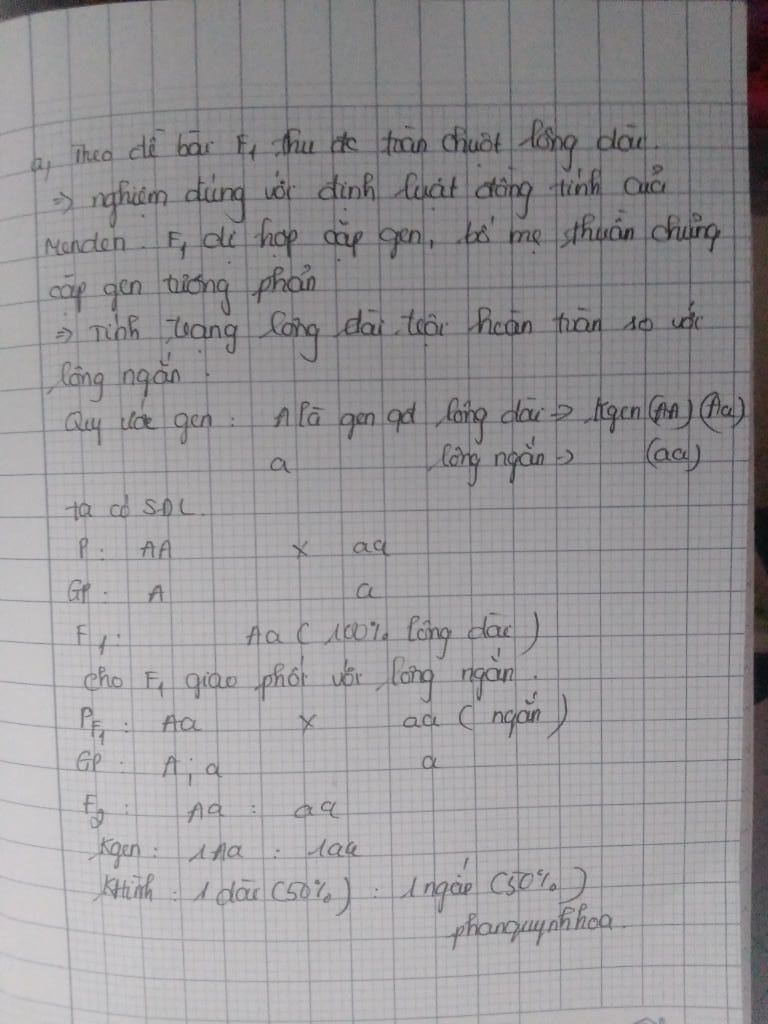 a, Theo đề bài F1 thu đc toàn chuột lông dài.
=> nghiệm đúng với định luật đồng tính của
Menđen. F1 dị hợp cặp gen, bố mẹ thuần chủng
cặp gen tương phản
=> Tính trạng lông dài trội hoàn toàn so với
lông ngắn.
Quy ước gen: A là gen qđ lông dài => Kgen (AA) (Aa)
a lông ngắn -> (aa)
ta có SĐL.
P: AA x aa
GP: A a
F1: Aa (100% lông dài)
cho F1 giao phối với lông ngắn.
PF1: Aa x aa (ngắn)
GP: A; a a
F2: Aa : aa
Kgen: 1Aa : 1aa
KHình: 1 dài (50%) : 1 ngắn (50%)
phanquynhhoa.